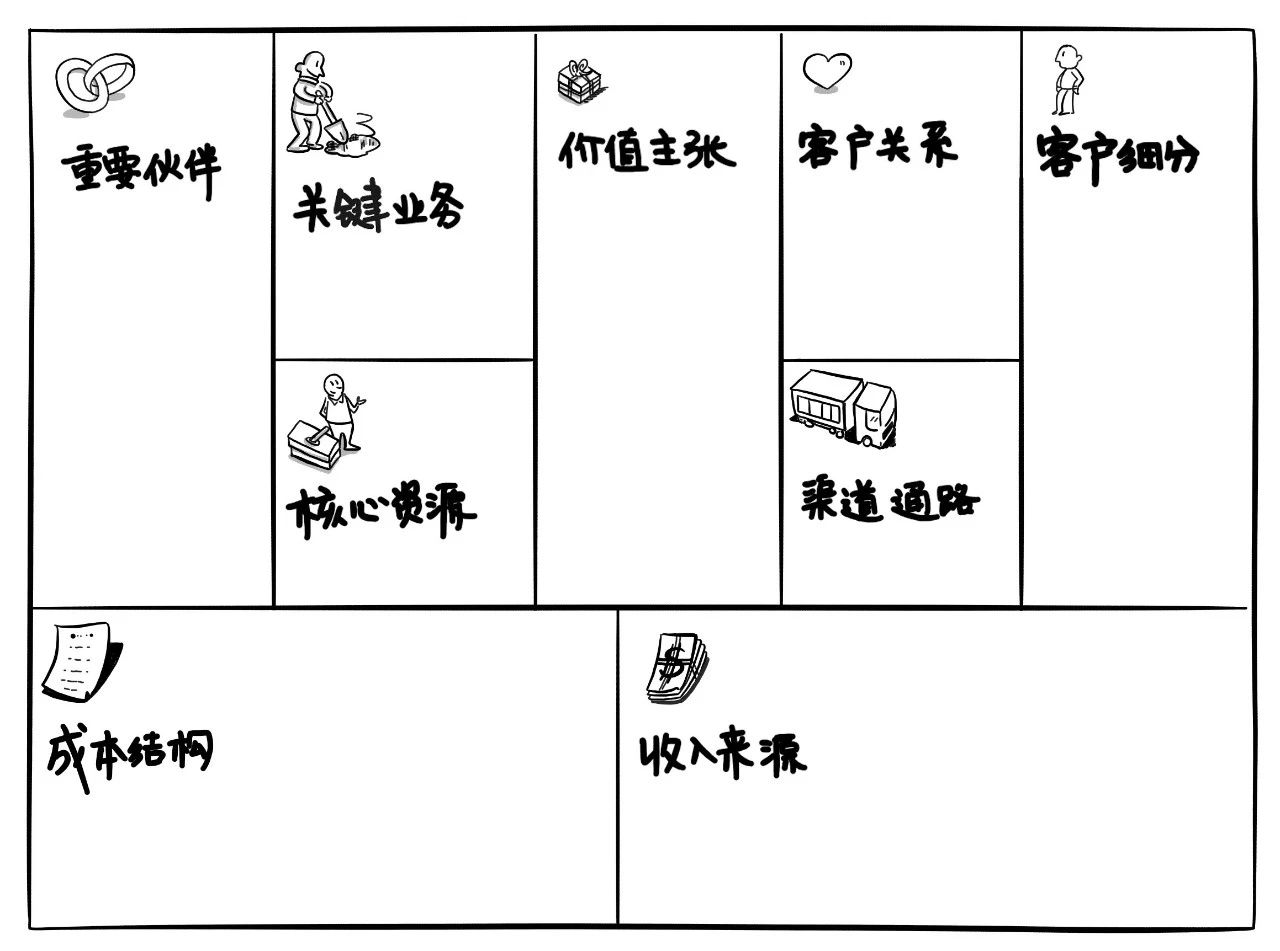 重要伙伴
关键业务
核心资源
价值主张
客户关系
渠道通路
客户细分
成本结构
$
收入来源